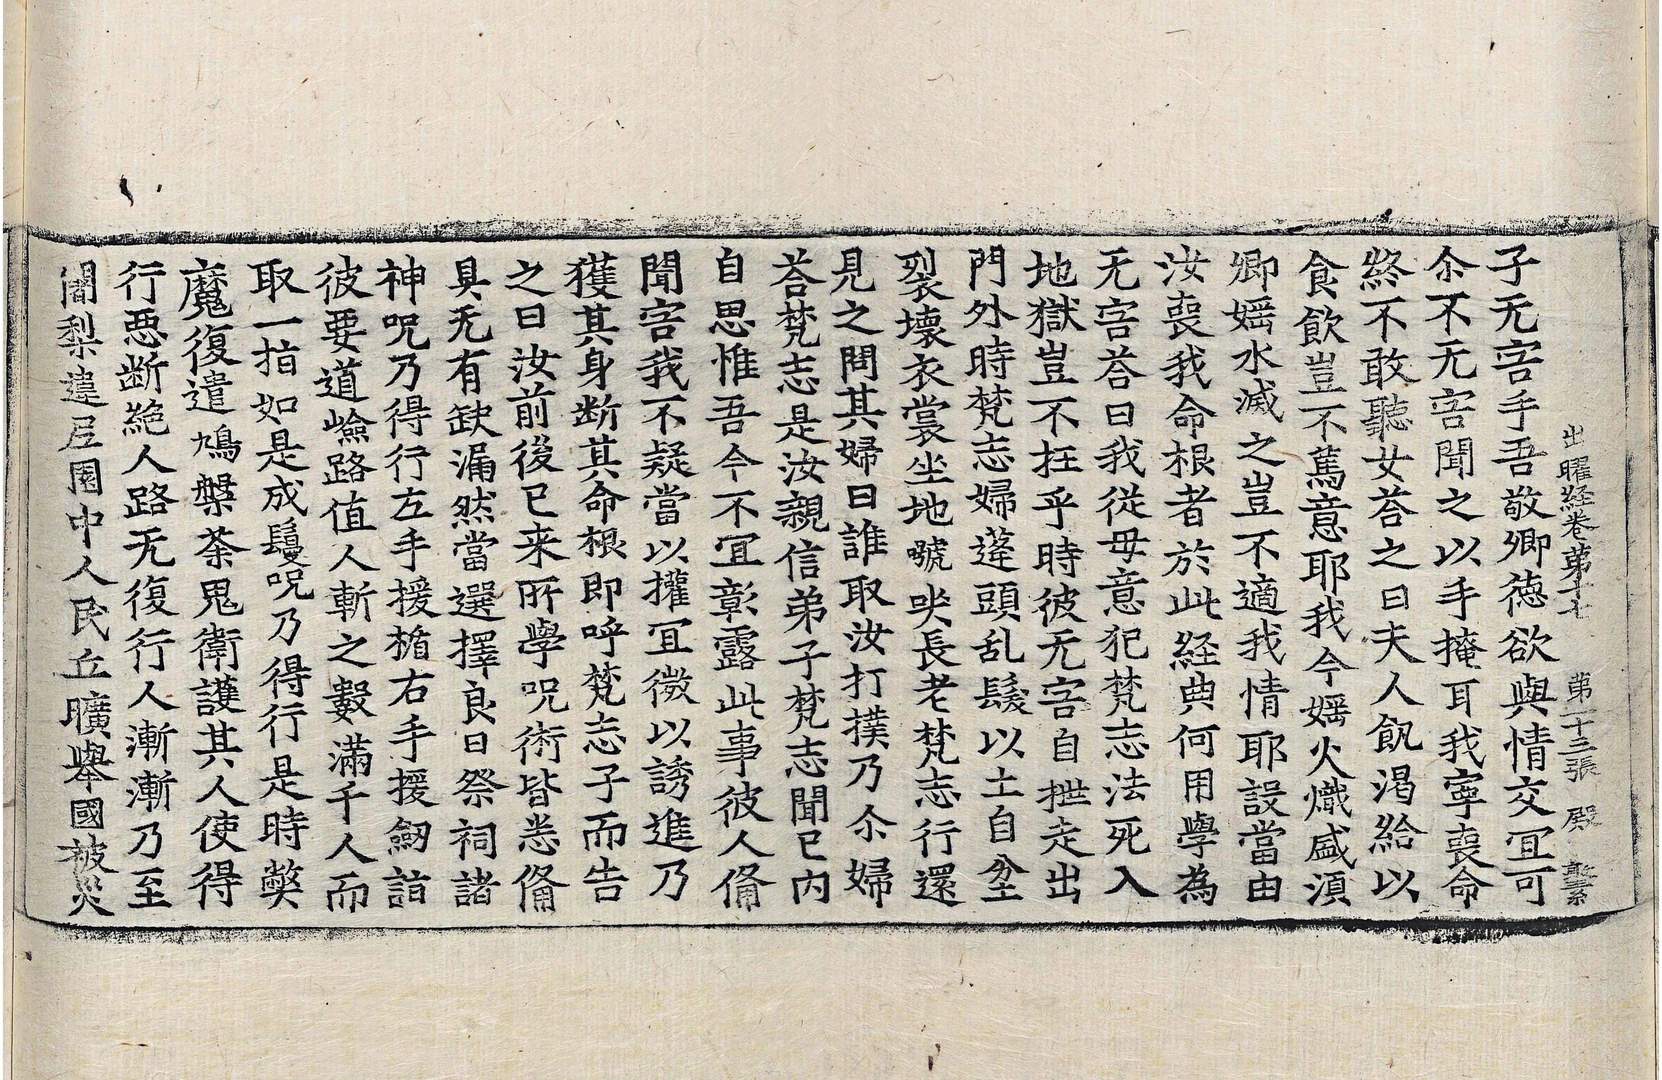 出曜経卷第十七　第二十三張　殿
子无害手吾敬卿德欲與情交冝可
尒不无害聞之以手掩耳我寧喪命
終不敢聽女荅之曰夫人飢渴給以
食飲豈不篤意耶我今婬火熾盛湏
卿婬水滅之豈不適我情耶設當由
汝喪我命根者於此経典何用學為
无害荅曰我從母意犯梵志法死入
地獄豈不抂乎時彼无害自拽走出
門外時梵志婦蓬頭乱髮以土自坌
裂壞衣裳坐地嗁哭長老梵志行還
見之問其婦曰誰取汝打撲乃尒婦
荅梵志是汝親信弟子梵志聞已内
自思惟吾今不冝彰露此事彼人俻
聞害我不疑當以權冝微以誘進乃
獲其身断其命根即呼梵志子而告
之曰汝前後已来所學呪術皆悉俻
具无有缺漏然當選擇良日祭祠諸
神呪乃得行左手援楯右手援劒詣
彼要道嶮路值人斬之數滿千人而
取一指如是成鬘呪乃得行是時獘
魔復遣鳩槃荼鬼衛護其人使得
行惡断絶人路无復行人漸漸乃至
闍梨違尼園中人民丘曠舉國被災